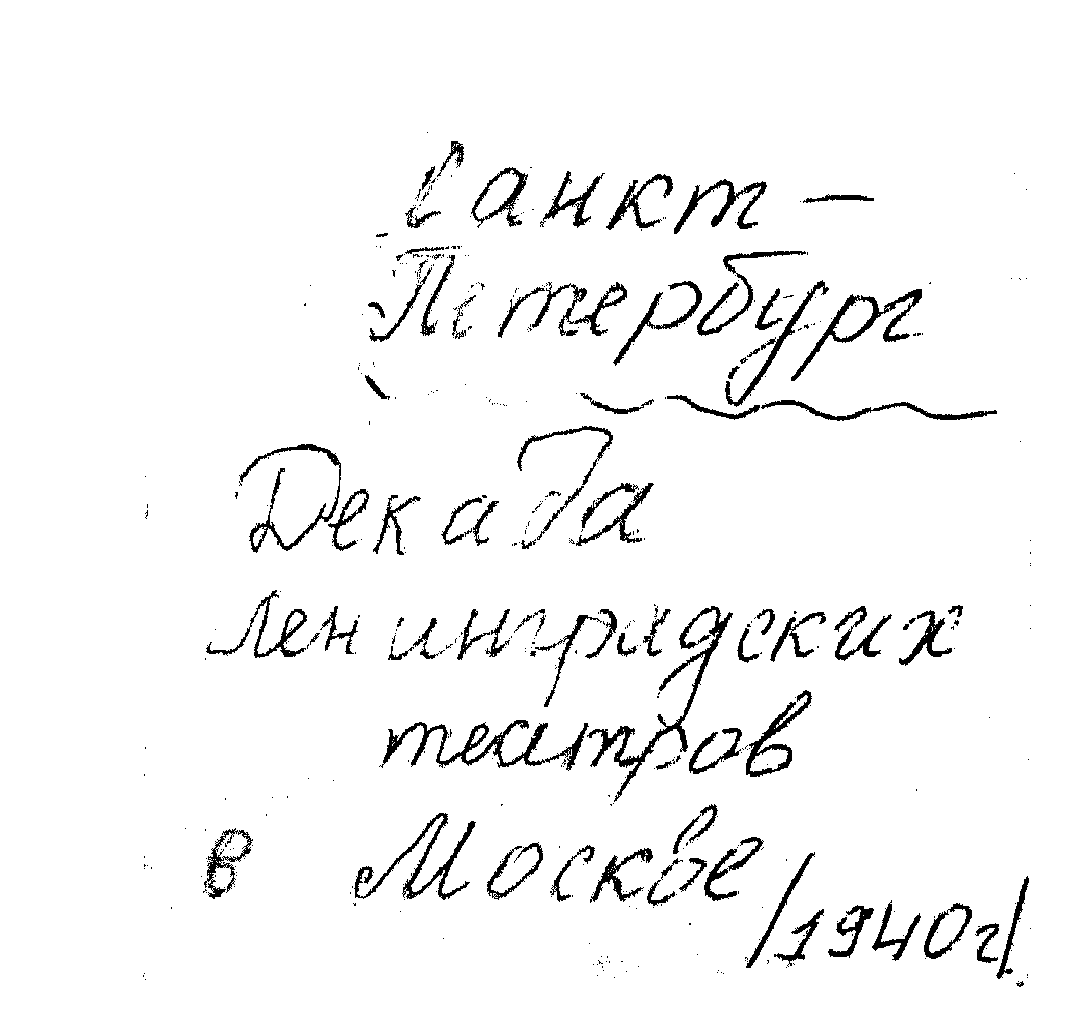 Санкт-
Петербург
Декада
ленинградских
театров
в Москве
/1940г/.